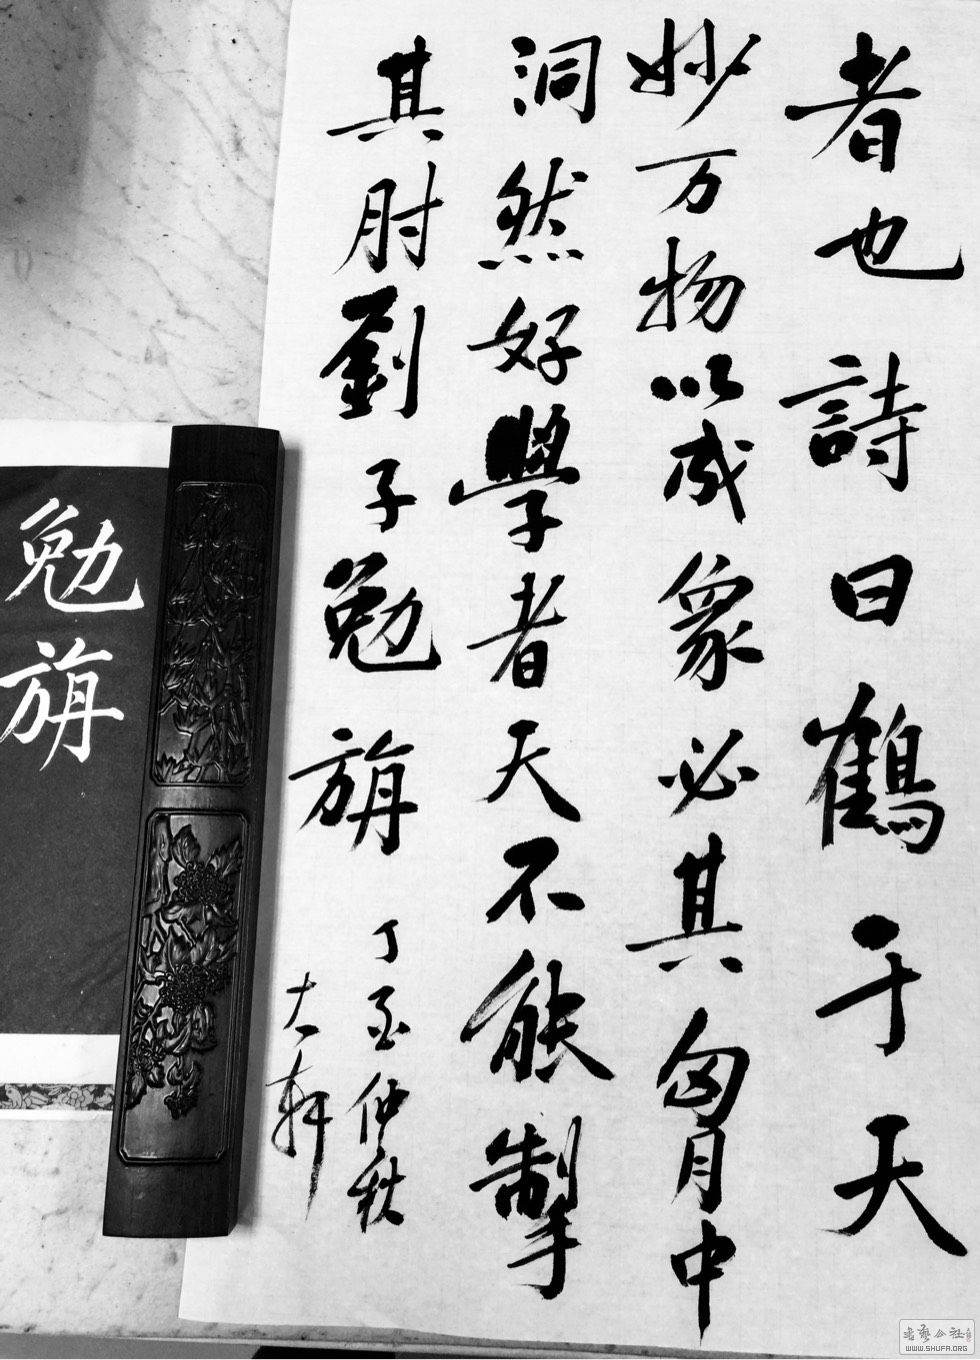 者也詩曰鶴于天
妙万物以成象必其匈月中
洞然好學者天不能掣
其肘劉子勉旃
丁酉仲秋
大軒
勉旃
書藝公社
WWW.SHUFA.ORG